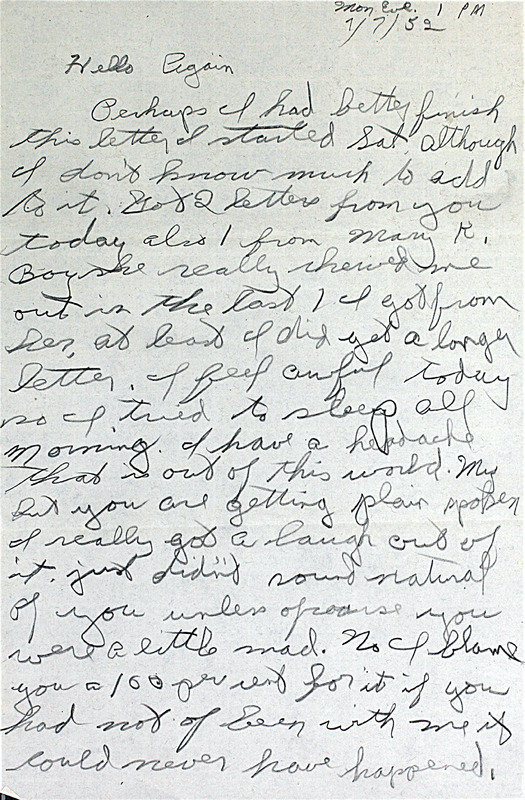 Mon Eve. 1 PM
7/7/52
Hello Again
Perhaps I had better finish
this letter I started Sat. although
I don't know much to add
to it. Got 2 letters from you
today also 1 from Mary K.
Boy she really chewed me
out in the last 1 I got from
her, at least I did get a longer
letter. I feel awful today
so I tried to sleep all
morning. I have a headache
that is out of this world. My
but you are getting plain spoken
I really got a laugh out of
it. just didn't sound natural
of you unless ofcourse you
were a little mad. No I blame
you a 100 per cent for it if you
had not of been with me it
could never have happened.